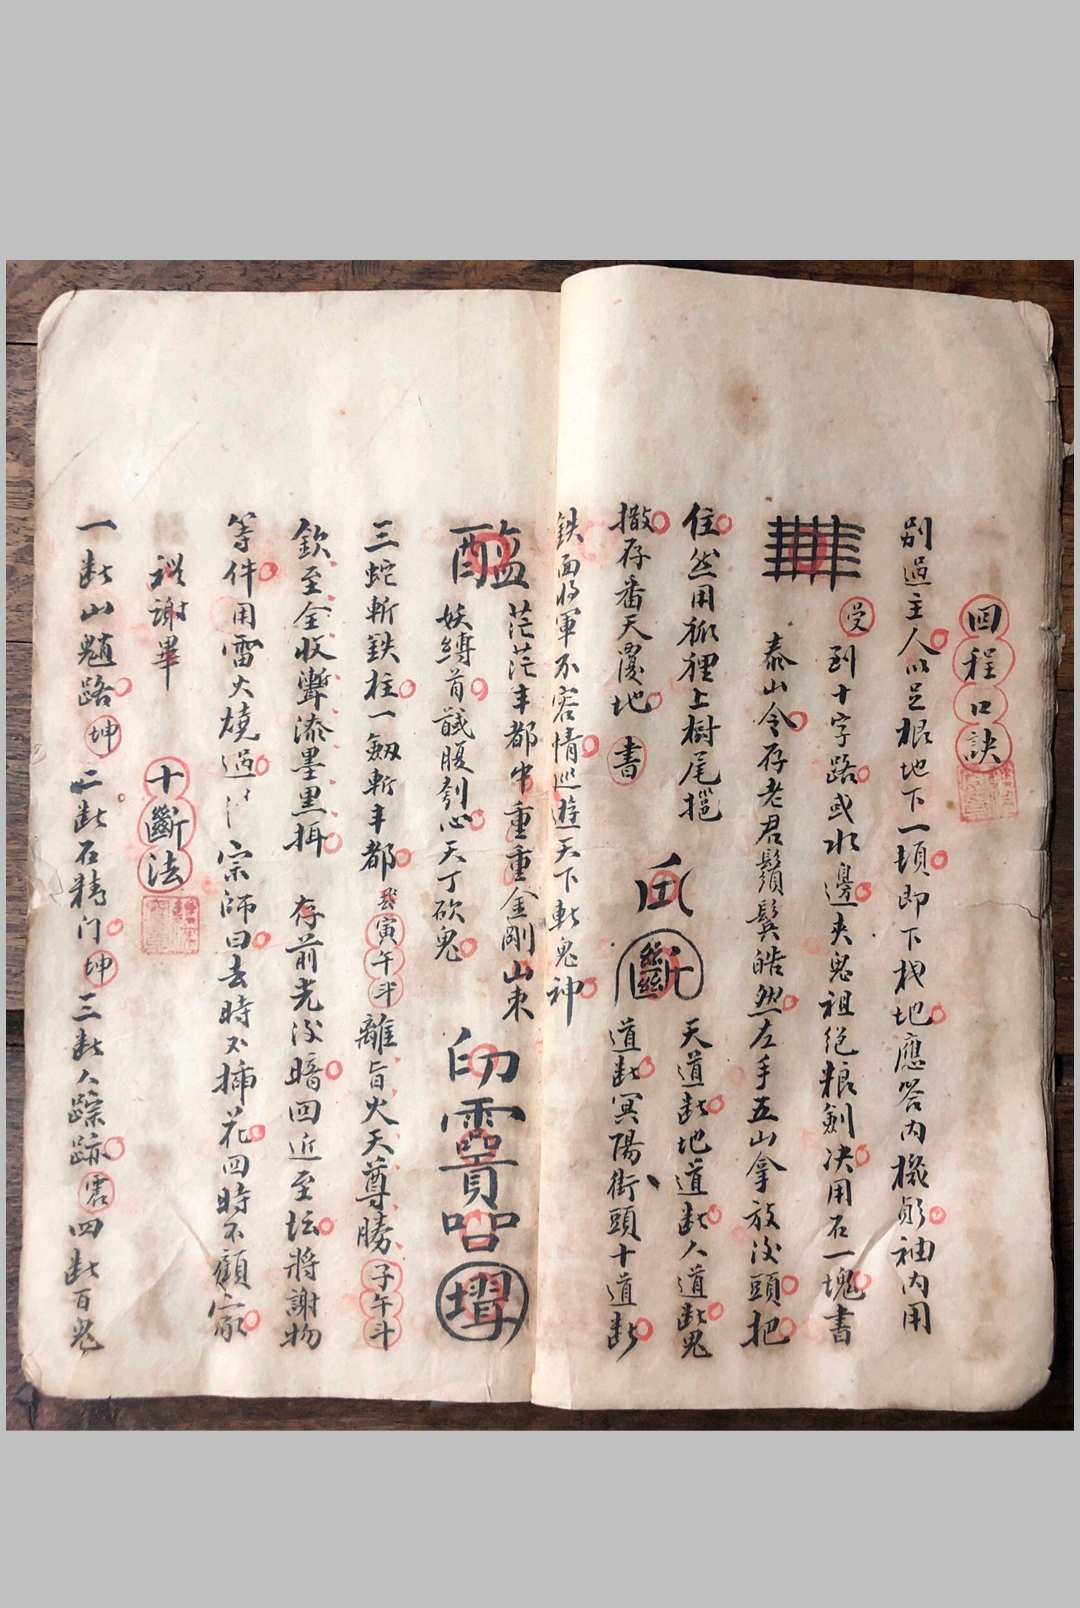 回程口訣
別過主人以足根地下一頓即下找地應答內機前袖內用
受到十字路或水邊夾鬼祖絕糧劍决用石一塊書
泰山令存老君鬚鬓皓然左手五山拿放後頭把
住然用狐狸上樹尾
撒存番天覆地書
斷
天道断地道断人道断鬼
道断冥陽街頭十道断
鉄面将軍不容情巡遊天下斬鬼神
茫茫丰都中重重金剛山束
妖縛首馘腹刳心天丁砍鬼
三蛇斬鉄柱一劔斬丰都 寅午斗離旨火天尊勝子午斗
欽至全收 漆墨黑揖 存前光後暗回近至坛將謝物
等件用雷火燒過 宗師曰去時不插花回時不顧家
謝畢 十斷法
一断山魈路坤二断石精门坤三断人蹤跡震四断百鬼